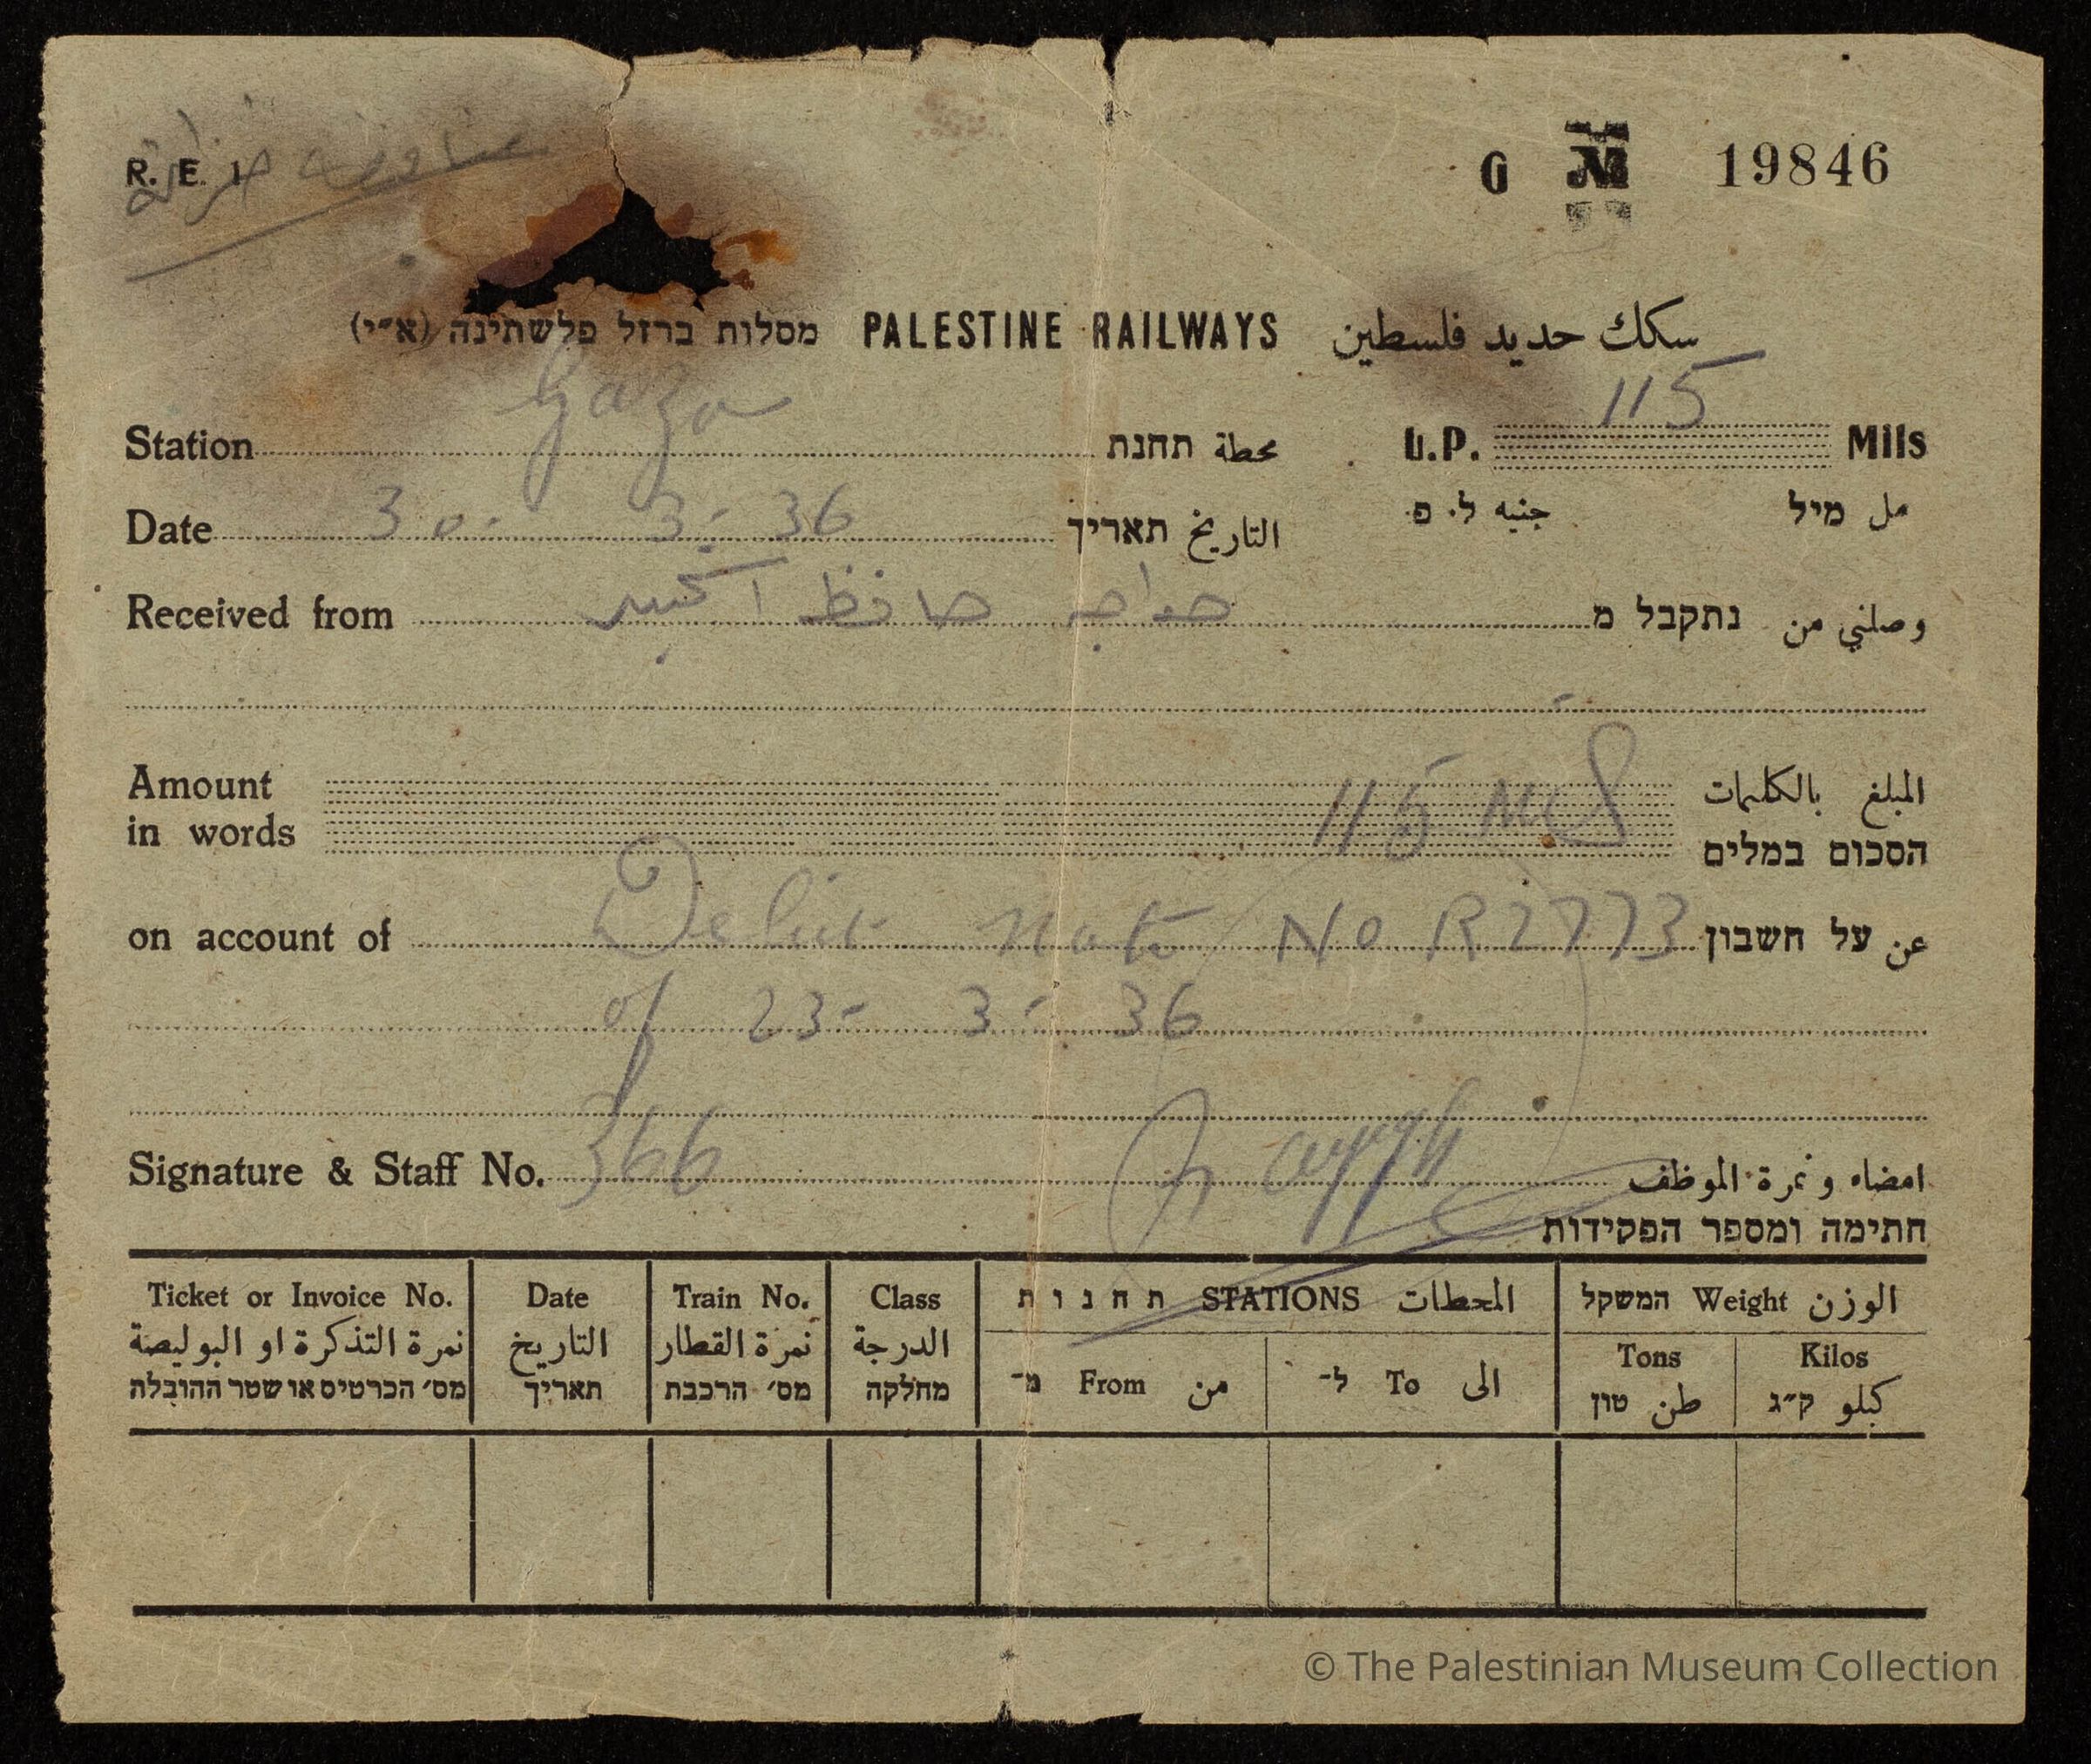 R. E. 1
G № 19846
מסלות ברזל פלשתינה (א״י) PALESTINE RAILWAYS سكك حديد فلسطين
Station Gaza محطة תחנת
L.P. 115 Mils
جنيه ל. פ. مل מיל
Date 30 - 3 - 36 التاريخ תאריך
Received from خواجه حافظ وصلني من נתקבל מ
Amount in words 115 Mls المبلغ بالكلمات הסכום במלים
on account of Debit note No R2773 عن על חשבון
of 23 - 3 - 36
Signature & Staff No. 366 امضاء ونمرة الموظف
חתימה ומספר הפקידות
Ticket or Invoice No. Date Train No. Class תחנות STATIONS المحطات המשקל Weight الوزن
نمرة التذكرة او البوليصة التاريخ نمرة القطار الدرجة
מס׳ הכרטיס או שטר ההובלה תאריך מס׳ הרכבת מחלקה
מ־ From من ל־ To الى Tons طن טון Kilos كيلو ק״ג
© The Palestinian Museum Collection